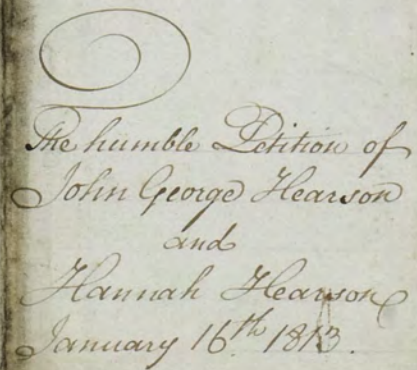 The humble Petition of
John George Hearson
and
Hannah Hearson
January 16th 1813.